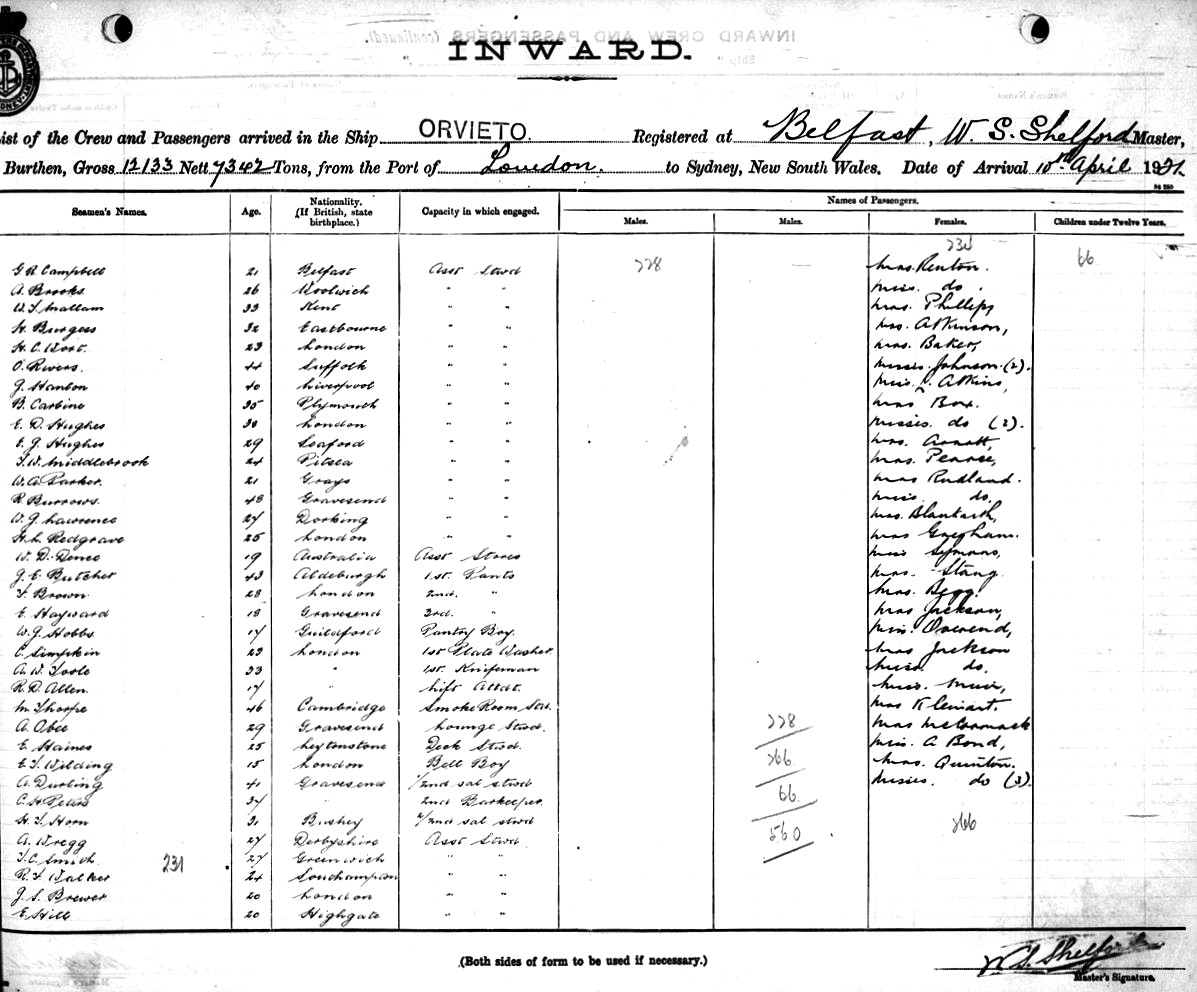 INWARD.
ist of the Crew and Passengers arrived in the Ship ORVIETO. Registered at Belfast, W. S. Shelford Master,
Burthen, Gross 12133 Nett 7342 Tons, from the Port of London. to Sydney, New South Wales. Date of Arrival 10th April 1921.
Seamen's Names. Age. Nationality. (If British, state birthplace.) Capacity in which engaged. Names of Passengers.
Males. Males. Females. Children under Twelve Years.
G R Campbell 21 Belfast Asst Stwd 228 — Mrs. Renton. 66
A. Brooks 26 Woolwich " " Miss. do.
W. S. Mallam 33 Kent " " Mrs. Phillips
H. Burgess 32 Eastbourne " " Mrs. Atkinson,
H. C. Wort. 23 London " " Mrs. Baker,
O. Rivers. 44 Suffolk " " Misses. Johnson (2).
J. Hanlon 40 Liverpool " " Miss. Atkins,
B. Carbine 35 Plymouth " " Mrs Box.
E. D. Hughes 30 London " " Misses. do (2).
E. J. Hughes 29 Seaford " " Mrs.
Middlebrook 24 Pitsea " " Mrs. Pearse,
W. A. Parker. 21 Grays " " Mrs Rudland.
R. Burrows. 48 Gravesend " " Miss. do.
W. J. Lawrence 27 Dorking " " Mrs.
H. L. Redgrave 25 London " " Mrs
W. D. 19 Australia Asst Stores Miss Symons,
G. E. Butcher 43 Aldeburgh 1st. Pants Mrs. Stang
F. Brown 28 London 2nd. " Mrs. Begg.
E. Hayward 18 Gravesend 3rd. " Mrs Jackson,
W. J. Hobbs. 17 Guildford Pantry Boy. Miss. Overend,
C. Simpkin 23 London 1st Plate Washer. Mrs Jackson
A. W. Toole 33 " 1st. Knifeman Miss. do.
R. D. Allen. 17 " Lift Attdt. Miss. Muir,
M. Thorpe 46 Cambridge Smoke Room Stwd. Mrs
A. Obee 29 Gravesend Lounge Stwd. 228 Mrs McCormack
E. Haines 25 Leytonstone Deck Stwd. Miss. A Bond,
E. J. Wilding 15 London Bell Boy 266 Mrs. Quinton.
A. Durling 41 Gravesend 1/2nd sal stwd Misses. do (3).
C. H. Peters 37 " 2nd Barkeeper. 66
H. J. Horn 31 Bushey 2/2nd sal stwd 266
A. Wragg 27 Derbyshire Asst Stwd. 560
Smith 231 27 Greenwich " "
R. F. Walker 24 Southampton " "
J. S. Brewer 20 London " "
E Hill 20 Highgate " "
(Both sides of form to be used if necessary.)
W. S. Shelford
Master's Signature.